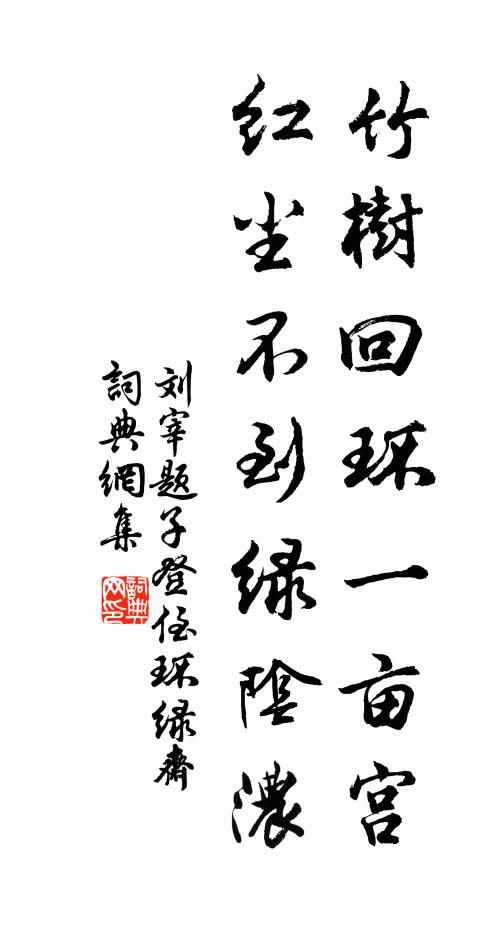 竹樹回环一亩宫
红尘不到绿陰濃
刘宰题子登侄环绿斋
詞典網集
詞典
网印